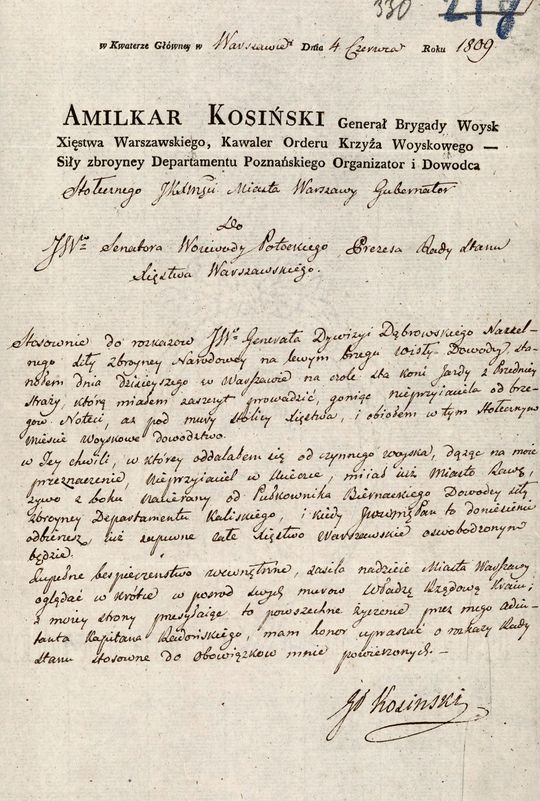 330
218
w Kwaterze Główney w Warszawie Dnia 4 Czerwca Roku 1809
AMILKAR KOSIŃSKI Generał Brygady Woysk
Xięstwa Warszawskiego, Kawaler Orderu Krzyża Woyskowego —
Siły zbroyney Departamentu Poznańskiego Organizator i Dowodca
Stołecznego Miasta Warszawy Gubernator
Do
JWo Senatora Woiewody Potockiego Prezesa Rady Stanu
Xięstwa Warszawskiego.
Stosownie do rozkazow JWo Generała Dywizyi Dąbrowskiego Naczel-
nego siły zbroyney Narodowey na lewym brzegu Wisły Dowodcy, sta-
nąłem dnia dzisieyszego w Warszawie na czele sta koni Jazdy z Przedniey
Straży, którą miałem zaszczyt prowadzić, goniąc nieprzyiaciela od brze-
gow Noteci, aż pod mury stolicy Xięstwa, i obiołem w tym Stołecznym
Mieście Woyskowe dowodztwo.
w Tey chwili, w którey oddalałem się od czynnego woyska, dążąc na moie
przeznaczenie, Nieprzyiaciel w ucieczce, miiał iuż Miasto Rawę,
żywo z boku nacierany od Pułkownika Biernackiego Dowodcy siły
zbroyney Departamentu Kaliskiego, i kiedy JWWPan to doniesienie
odbierzesz iuż zapewne całe Xięstwo Warszawskie oswobodzonym
będzie.
Zupełne bespieczenstwo wewnętrzne, zasila nadzieie Miasta Warszawy
oglądać w krótce w posrod swych murow Władzę Rządową Kraiu;
z moiey strony przesyłaiąc to powszechne życzenie przez mego adiu-
tanta Kapitana Radońskiego, mam honor upraszać o rozkazy Rady
Stanu stosowne do obowiązkow mnie powierzonych. —
Kosinski